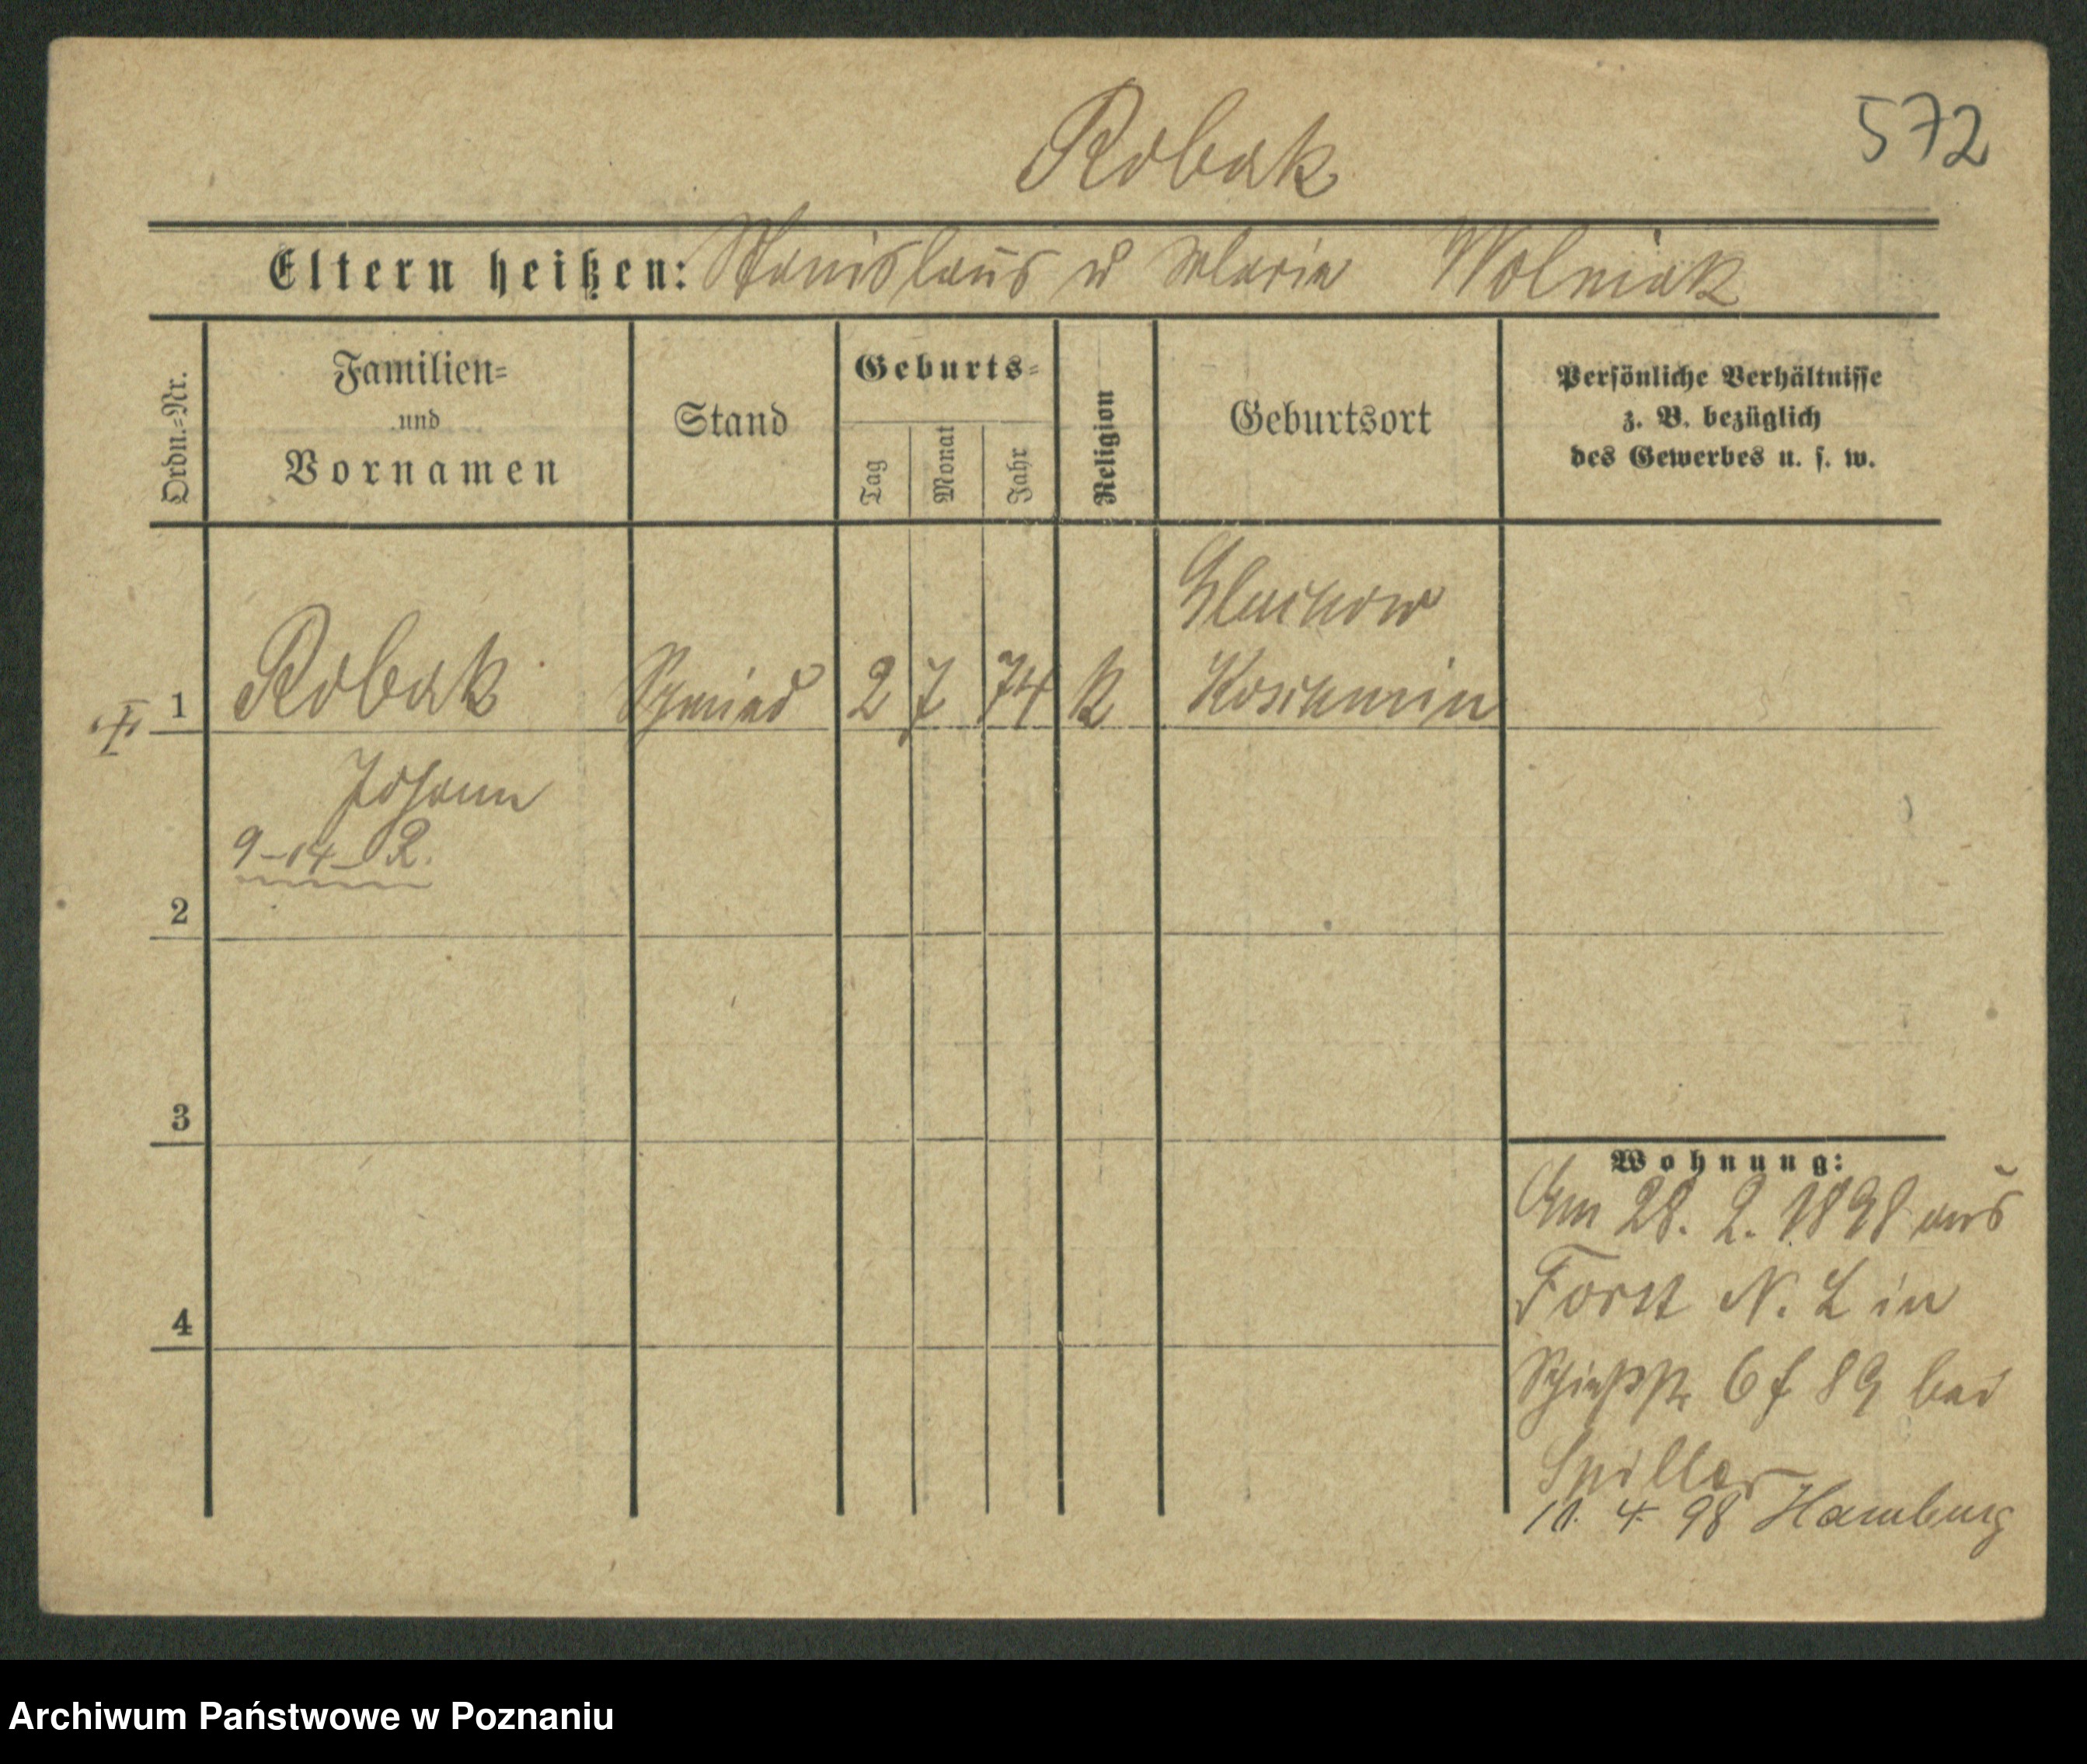 Robak
572
Eltern heißen: Stanislaus u Maria Wolniak
Ordn.=Nr.
Familien=
und
Vornamen
Stand
Geburts=
Tag
Monat
Jahr
Religion
Geburtsort
Persönliche Verhältnisse
z. B. bezüglich
des Gewerbes u. s. w.
Gluchow
1 Robak Schmied 2 7 74 k Koschmin
Johann
9-14-R.
2
3
4
Wohnung:
Am 28. 2. 1898 aus
Forst N. L in
6 f 89 bei
Spiller
4. 98 Hamburg
Archiwum Państwowe w Poznaniu